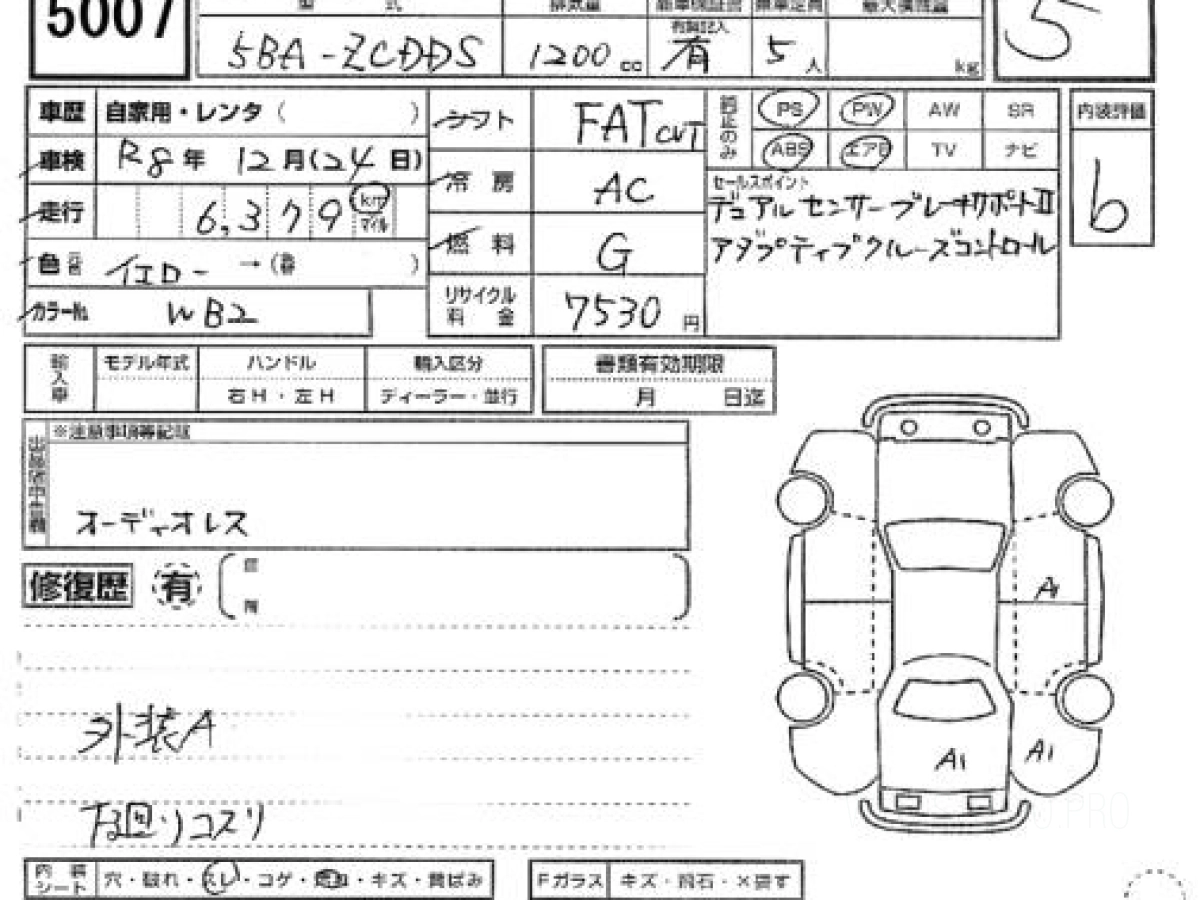 5007
型 式 排気量 新車保証書 乗車定員 最大積載量
有無記入
5BA-ZCDDS 1200 cc 有 5 人 kg
5
車歴 自家用・レンタ ( )
車検 R8年 12月(24日)
走行 6,379 km マイル
色 元色 イエロー →( 替 )
カラーNo. WB2
シフト FAT CVT
冷房 AC
燃料 G
リサイクル料金 7530 円
純正のみ PS PW AW SR
ABS エアB TV ナビ
セールスポイント
デュアルセンサーブレーキサポートII
アダプティブクルーズコントロール
内装評価
b
輸入車 モデル年式 ハンドル 輸入区分 書類有効期限
右H・左H ディーラー・並行 月 日迄
※注意事項等記載
オーディオレス
修復歴 有
A1
外装A
A1 A1
下廻りコスリ
内装シート 穴・破れ・スレ・コゲ・・キズ・黄ばみ
Fガラス キズ・飛石・×要す